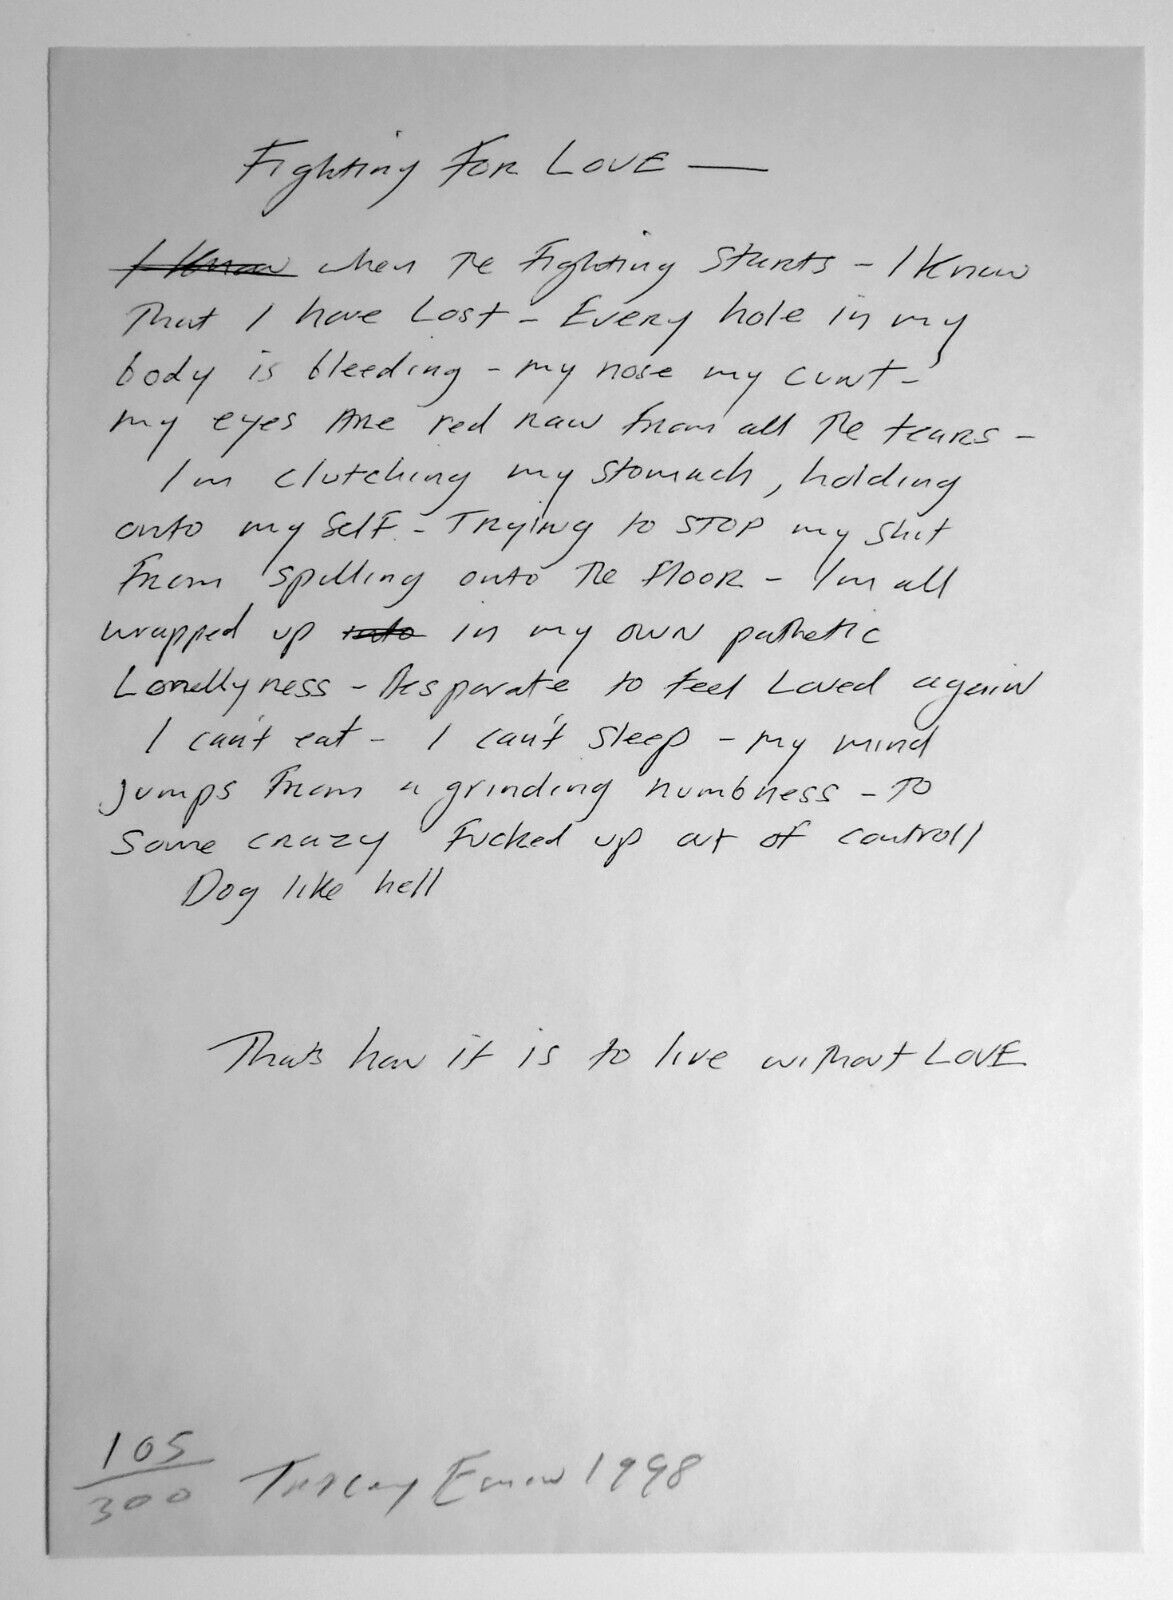 Fighting For LOVE —
I Know when The Fighting Starts - I Know
That I have Lost - Every hole in my
body is bleeding - my nose my cunt -
my eyes Are red raw From all The tears -
I'm clutching my stomach, holding
onto my Self - Trying to STOP my shit
From spilling onto The Floor - I'm all
wrapped up into in my own pathetic
Lonellyness - Desparate to feel Loved again
I can't eat - I can't sleep - my mind
jumps From a grinding numbness - To
Some crazy Fucked up out of controll
Dog like hell
Thats how it is to live without LOVE
105/300 Tracey Emin 1998